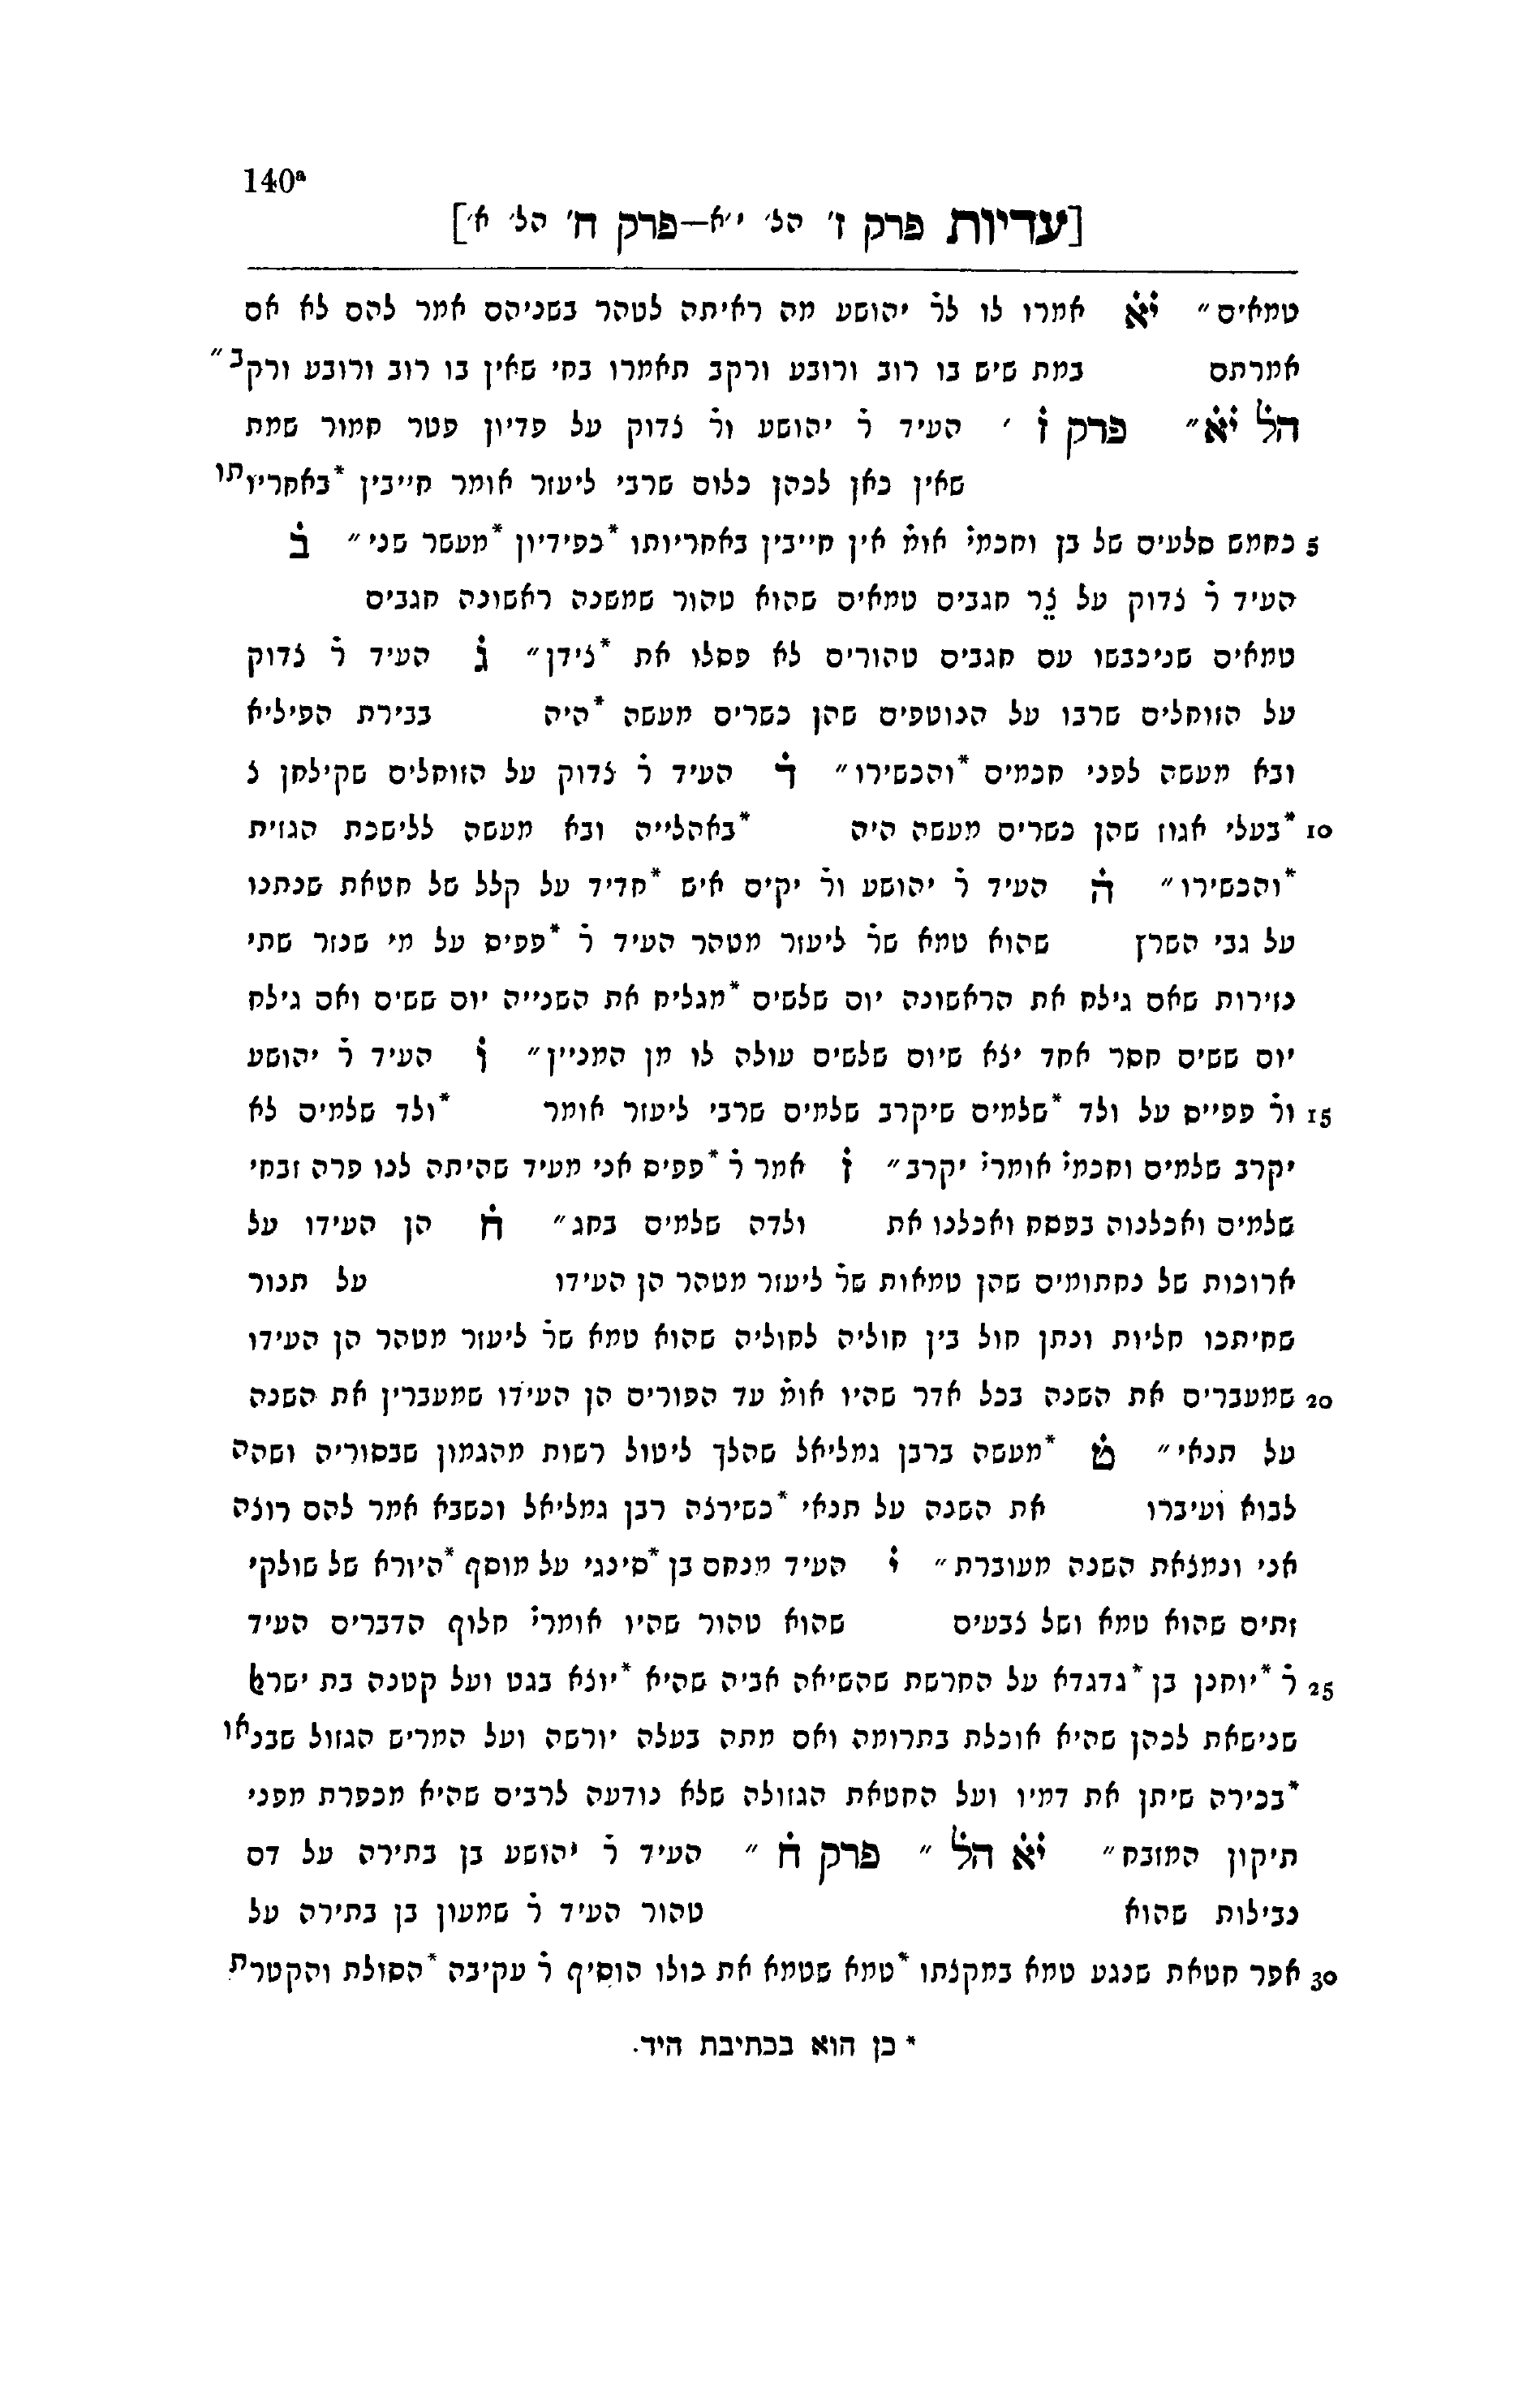 140ª
[עדיות פרק ז' הל' י״א—פרק ח' הל' א']
טמאים״ יא אמרו לו לר יהושע מה ראיתה לטהר בשניהם אמר להם לא אם
אמרתם במת שיש בו רוב ורובע ורקב תאמרו בחי שאין בו רוב ורובע ורקב״
הל יא״ פרק ז ׳ העיד ר יהושע ור צדוק על פדיון פטר חמור שמת
שאין כאן לכהן כלום שרבי ליעזר אומר חייבין *באחריותו
5 כחמש סלעים של בן וחכמי אומ אין חייבין באחריותו *כפידיון *מעשר שני״ ב
העיד ר צדוק על צר חגבים טמאים שהוא טהור שמשנה ראשונה חגבים
טמאים שניכבשו עם חגבים טהורים לא פסלו את *צידן״ ג העיד ר צדוק
על הזוחלים שרבו על הנוטפים שהן כשרים מעשה *היה בבירת הפיליא
ובא מעשה לפני חכמים *והכשירו״ ד העיד ר צדוק על הזוחלים שקילחן צ
10 *בעלי אגוז שהן כשרים מעשה היה *באהלייה ובא מעשה ללישכת הגזית
*והכשירו״ ה העיד ר יהושע ור יקים איש *חדיד על קלל של חטאת שנתנו
על גבי השרץ שהוא טמא שר ליעזר מטהר העיד ר *פפיס על מי שנזר שתי
נזירות שאם גילח את הראשונה יום שלשים *מגליח את השנייה יום ששים ואם גילח
יום ששים חסר אחד יצא שיום שלשים עולה לו מן המניין״ ו העיד ר יהושע
15 ור פפייס על ולד *שלמים שיקרב שלמים שרבי ליעזר אומר *ולד שלמים לא
יקרב שלמים וחכמי אומרי יקרב״ ז אמר ר *פפיס אני מעיד שהיתה לנו פרה זבחי
שלמים ואכלנוה בפסח ואכלנו את ולדה שלמים בחג״ ח הן העידו על
ארוכות של נחתומים שהן טמאות שר ליעזר מטהר הן העידו על תנור
שחיתכו חליות ונתן חול בין חוליה לחוליה שהוא טמא שר ליעזר מטהר הן העידו
20 שמעברים את השנה בכל אדר שהיו אומ עד הפורים הן העידו שמעברין את השנה
על תנאי״ ט *מעשה ברבן גמליאל שהלך ליטול רשות מהגמון שבסוריה ושהה
לבוא ועיברו את השנה על תנאי *כשירצה רבן גמליאל וכשבא אמר להם רוצה
אני ונמצאת השנה מעוברת״ י העיד מנחם בן *סינגי על מוסף *היורא של שולקי
זתים שהוא טמא ושל צבעים שהוא טהור שהיו אומרי חלוף הדברים העיד
25 ר *יוחנן בן *גדגדא על החרשת שהשיאה אביה שהיא *יוצא בגט ועל קטנה בת ישראל
שנישאת לכהן שהיא אוכלת בתרומה ואם מתה בעלה יורשה ועל המריש הגזול שבנאו
*בבירה שיתן את דמיו ועל החטאת הגזולה שלא נודעה לרבים שהיא מכפרת מפני
תיקון המזבח״ יא הל ״ פרק ח ״ העיד ר יהושע בן בתירה על דם
נבילות שהוא טהור העיד ר שמעון בן בתירה על
30 אפר חטאת שנגע טמא במקצתו *טמא שטמא את כולו הוסיף ר עקיבה *הסולת והקטרת
* כן הוא בכתיבת היד.